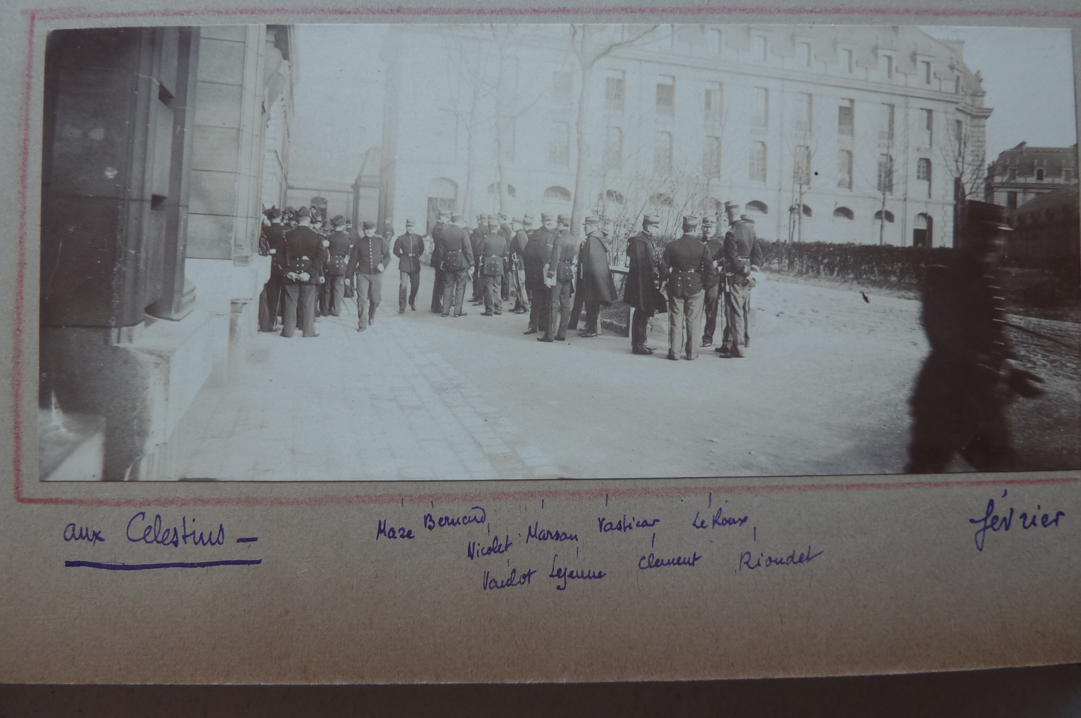 aux Celestins –
Maze Bernard Marsan Vasticar Le Roux
Nicolet
Vaidot Lejeune Clement Rioudet
février